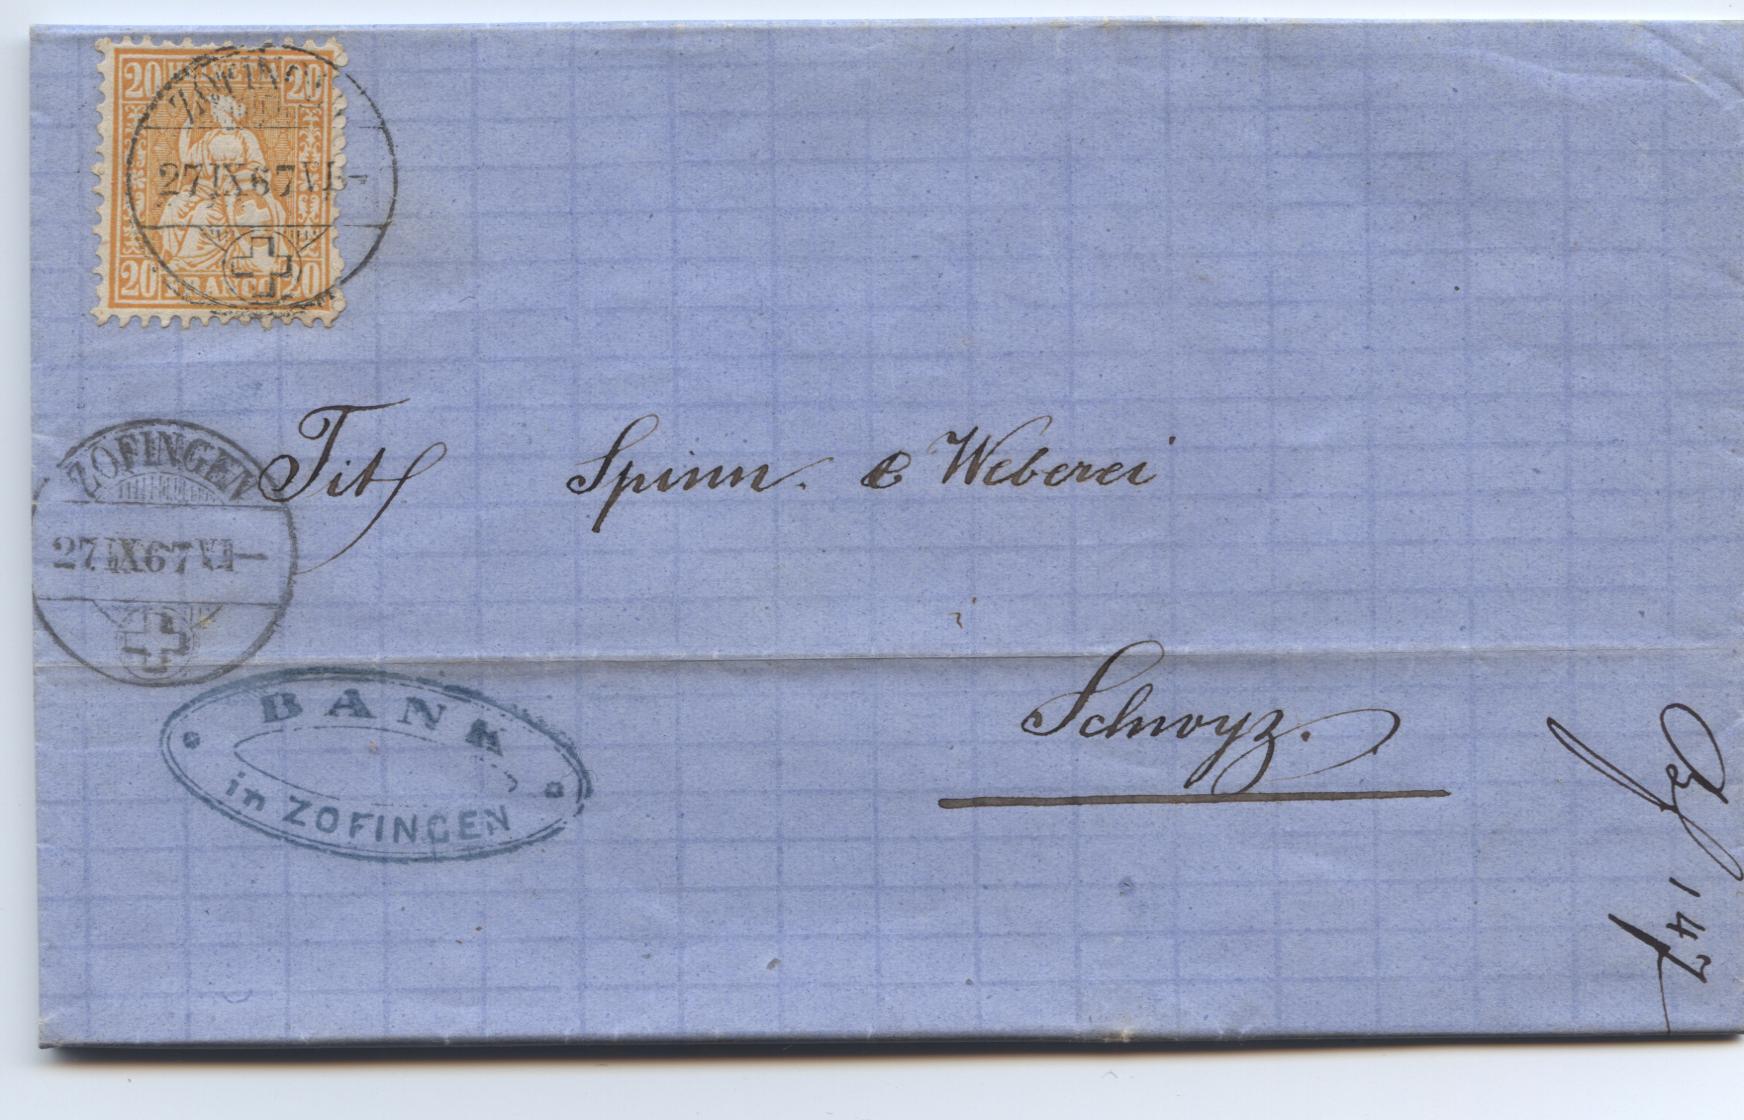 20 HELVETIA 20
ZOFINGEN
27 IX 67 VI-
20 FRANCO 20
Tit Spinn. & Weberei
ZOFINGEN
27 IX 67 VI-
Schwyz.
BANK
in ZOFINGEN
147